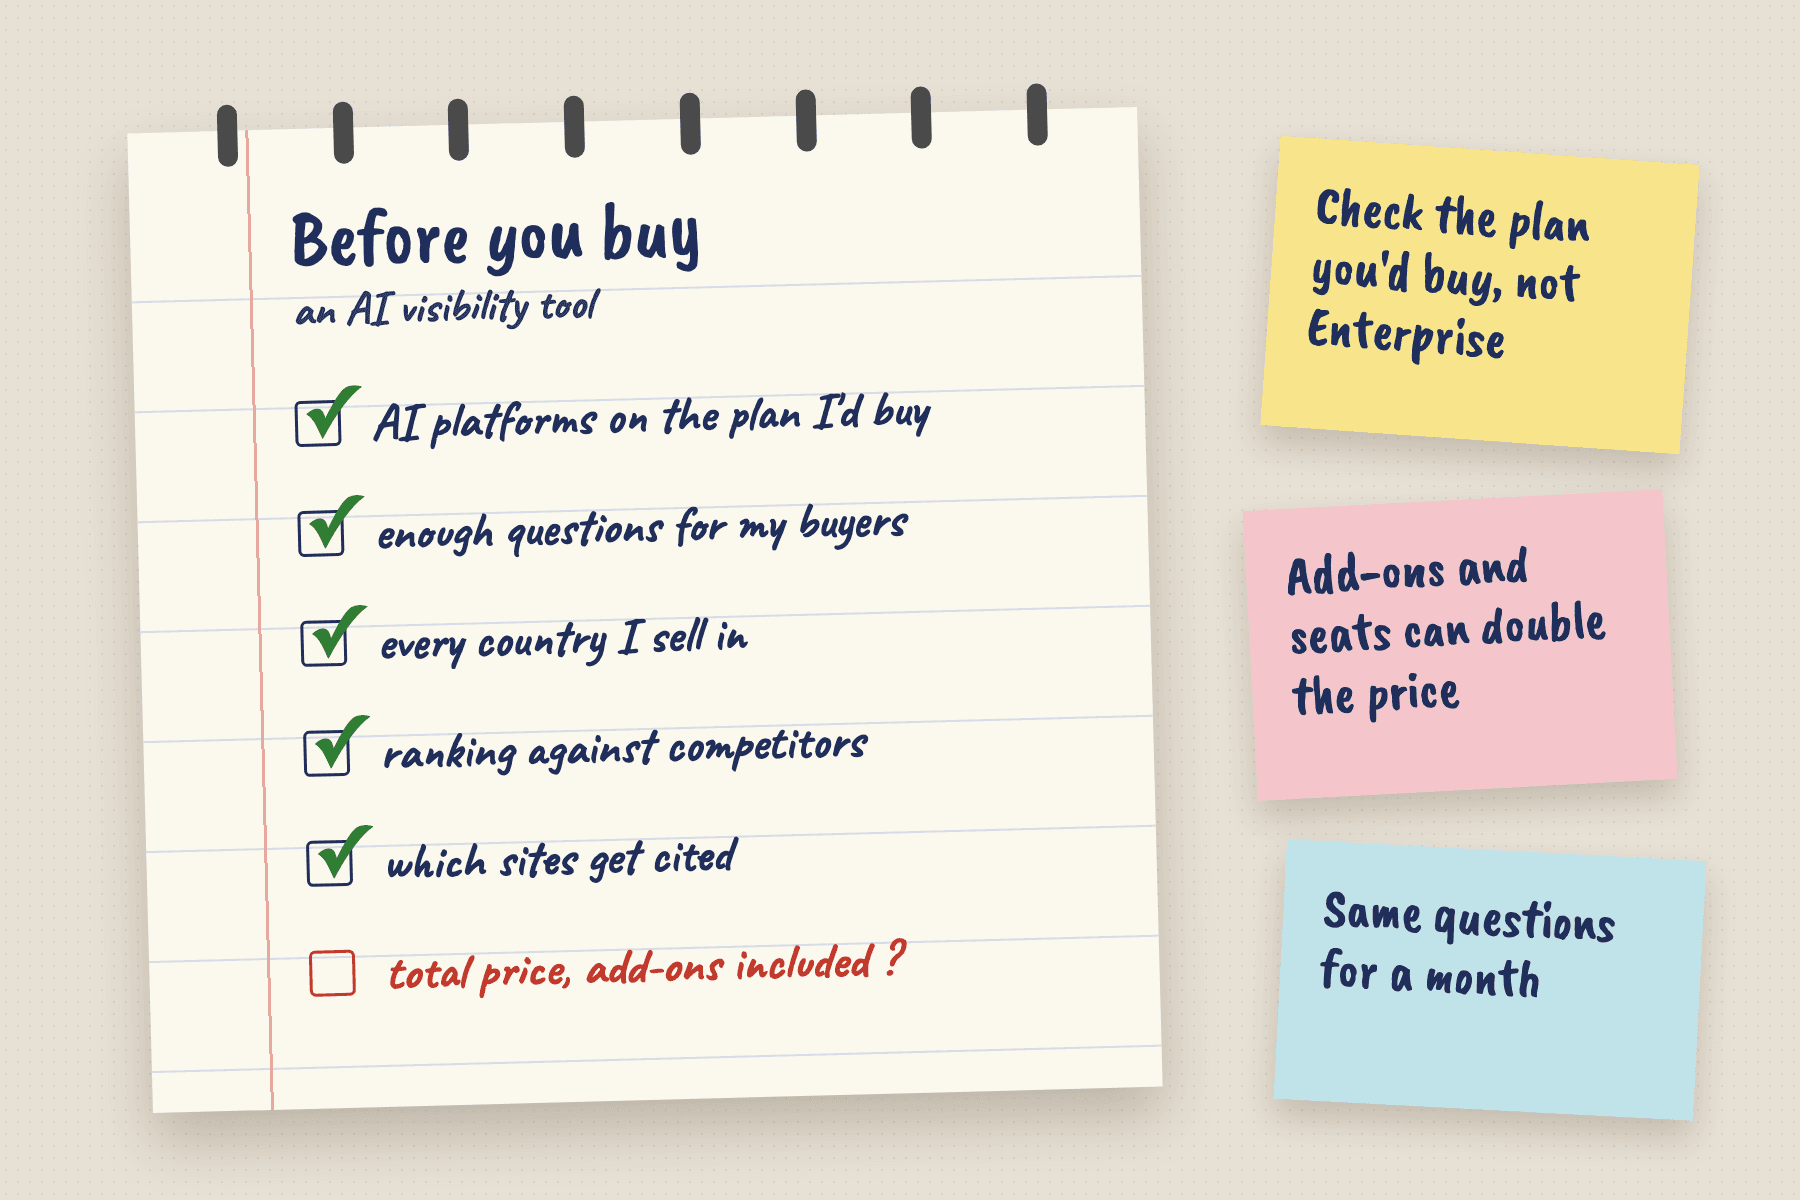 Before you buy
an AI visibility tool
AI platforms on the plan I'd buy
enough questions for my buyers
every country I sell in
ranking against competitors
which sites get cited
total price, add-ons included ?
Check the plan
you'd buy, not
Enterprise
Add-ons and
seats can double
the price
Same questions
for a month